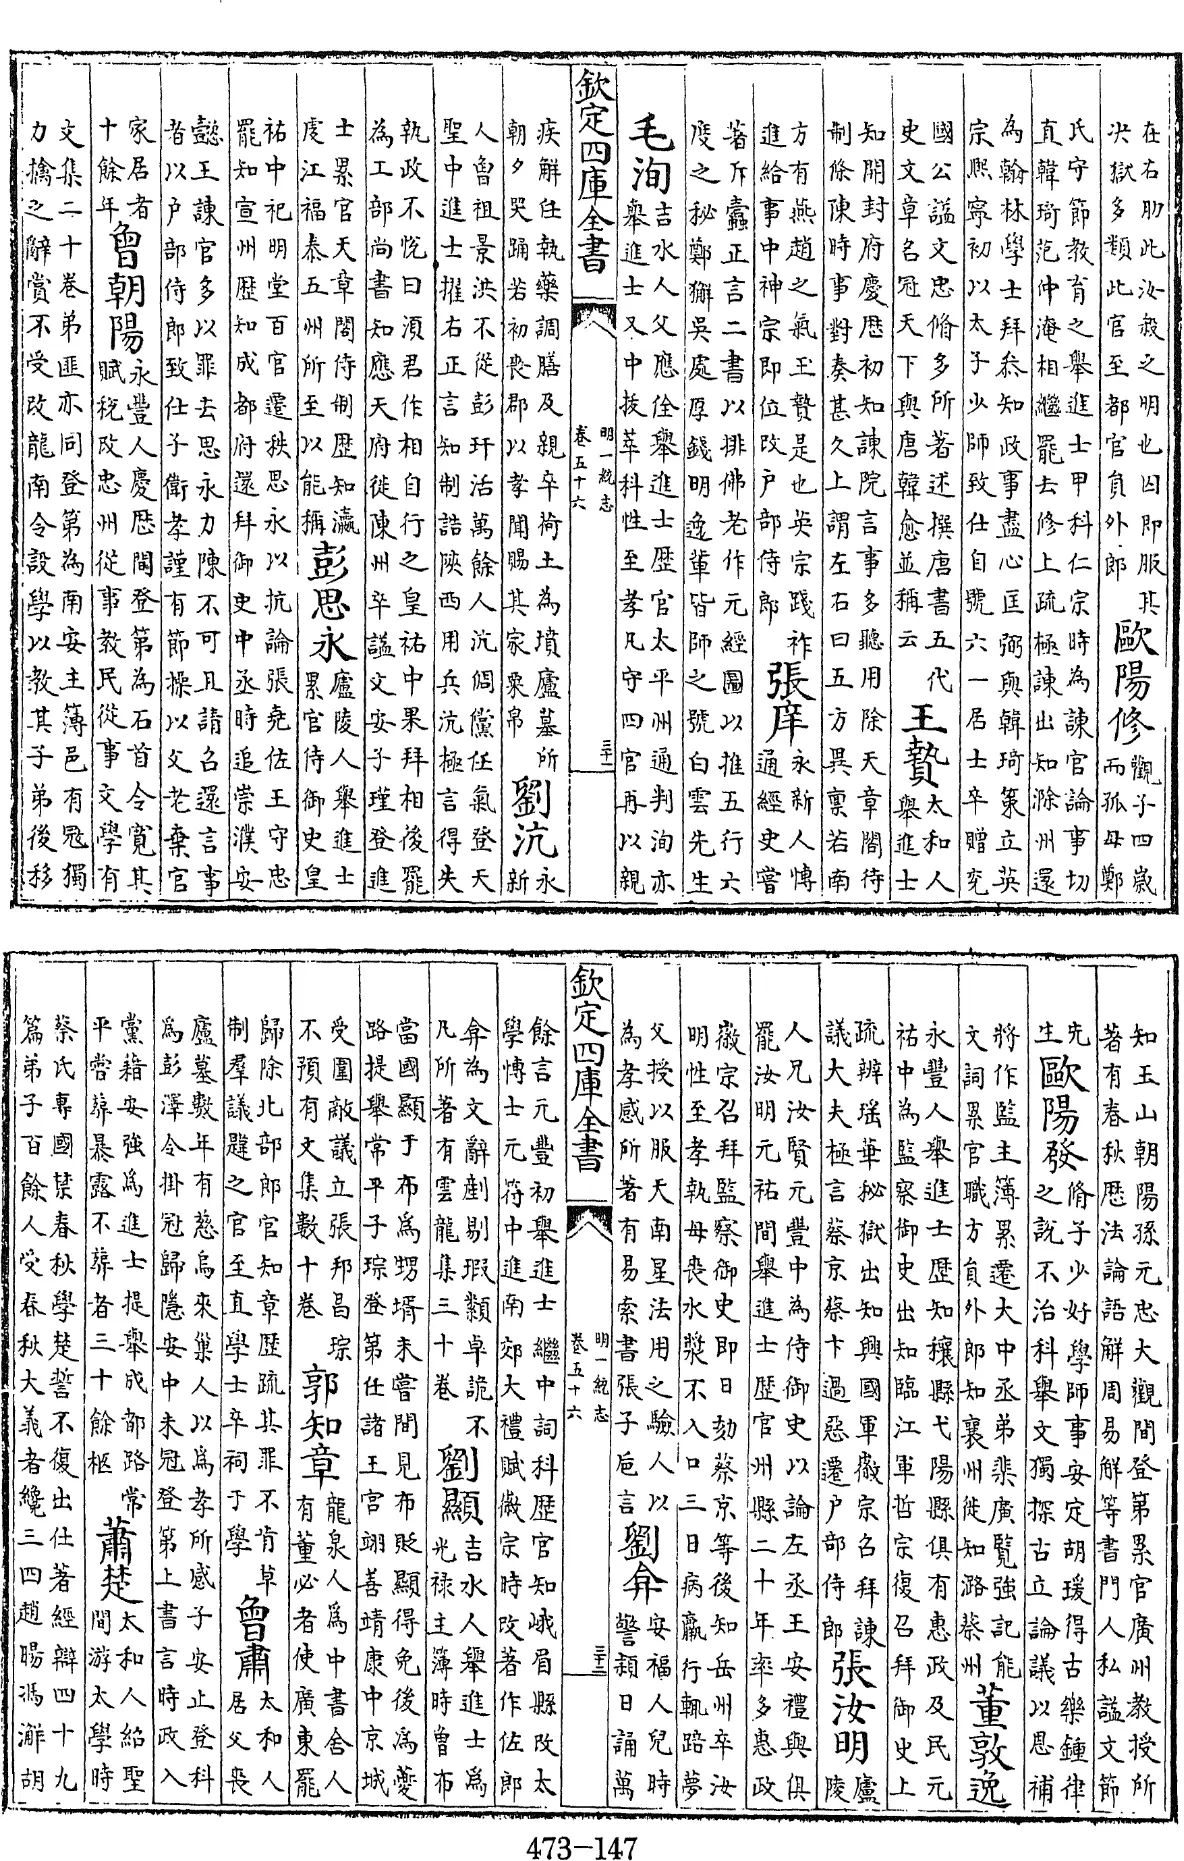 在右肋此汝殺之明也囚即服其
決獄多類此官至都官員外郎
歐陽修
觀子四歲
而孤母鄭
氏守節教育之舉進士甲科仁宗時為諫官論事切
直韓琦范仲淹相繼罷去修上疏極諫出知滁州還
為翰林學士拜叅知政事盡心匡弼與韓琦策立英
宗熙寧初以太子少師致仕自號六一居士卒贈兖
國公諡文忠脩多所著述撰唐書五代
史文章名冠天下與唐韓愈並稱云
王贄
太和人
舉進士
知開封府慶厯初知諫院言事多聽用除天章閣待
制條陳時事對奏甚久上謂左右曰五方異稟若南
方有燕趙之氣王贄是也英宗踐祚
進給事中神宗即位改户部侍郎
張庠
永新人博
通經史嘗
著斥蠹正言二書以排佛老作元經圖以推五行六
度之秘鄭獬吳處厚錢明逸輩皆師之號白雲先生
毛洵
吉水人父應佺舉進士歴官太平州通判洵亦
舉進士又中拔萃科性至孝凡守四官再以親
欽定四庫全書
明一統志
卷五十六
三十一
疾解任執藥調膳及親卒荷土為墳廬墓所
朝夕哭踊若初喪郡以孝聞賜其家粟帛
劉沆
永
新
人曾祖景洪不從彭玕活萬餘人沆倜儻任氣登天
聖中進士擢右正言知制誥陜西用兵沆極言得失
執政不悅曰湏君作相自行之皇祐中果拜相後罷
為工部尚書知應天府徙陳州卒諡文安子瑾登進
士累官天章閣侍制歴知瀛
䖍江福泰五州所至以能稱
彭思永
廬陵人舉進士
累官侍御史皇
祐中祀明堂百官遷秩思永以抗論張堯佐王守忠
罷知宣州歴知成都府還拜御史中丞時追崇濮安
懿王諫官多以罪去思永力陳不可且請召還言事
者以户部侍郎致仕子衛孝謹有節操以父老棄官
家居者
十餘年
曾朝陽
永豐人慶厯間登第為石首令寬其
賦稅改忠州從事教民從事文學有
文集二十卷弟匪亦同登第為南安主簿邑有冦獨
力擒之辭賞不受改龍南令設學以教其子弟後移
知玉山朝陽孫元忠大觀間登第累官廣州教授所
著有春秋歴法論語解周易解等書門人私諡文節
先
生
歐陽發
脩子少好學師事安定胡瑗得古樂鍾律
之説不治科舉文獨探古立論議以恩補
將作監主簿累遷大中丞弟棐廣覽強記能
文詞累官職方員外郎知襄州徙知潞蔡州
董敦逸
永豐人舉進士歴知穰縣弋陽縣俱有惠政及民元
祐中為監察御史出知臨江軍哲宗復召拜御史上
疏辨瑶華秘獄出知興國軍徽宗召拜諫
議大夫極言蔡京蔡卞過惡遷户部侍郎
張汝明
廬
陵
人兄汝賢元豐中為侍御史以論左丞王安禮與俱
罷汝明元祐間舉進士歴官州縣二十年率多惠政
徽宗召拜監察御史即日劾蔡京等後知岳州卒汝
明性至孝執母喪水漿不入口三日病羸行輒踣夢
父授以服天南星法用之驗人以
為孝感所著有易索書張子巵言
劉弇
安福人兒時
警穎日誦萬
欽定四庫全書
明一統志
卷五十六
三十二
餘言元豐初舉進士繼中詞科歴官知峨眉縣改太
學博士元符中進南郊大禮賦徽宗時改著作佐郎
弇為文辭剷剔瑕纇卓詭不
凡所著有雲龍集三十卷
劉顯
吉水人舉進士為
光禄主簿時曾布
當國顯于布爲甥壻未嘗間見布貶顯得免後爲夔
路提舉常平子琮登第任諸王宮翊善靖康中京城
受圍敵議立張邦昌琮
不預有文集數十卷
郭知章
龍泉人爲中書舍人
有董必者使廣東罷
歸除北部郎官知章歴疏其罪不肯草
制羣議韙之官至直學士卒祠于學
曾肅
太和人
居父喪
廬墓數年有慈烏來巢人以爲孝所感子安止登科
爲彭澤令掛冠歸隠安中未冠登第上書言時政入
黨籍安強爲進士提舉成都路常
平嘗葬暴露不葬者三十餘柩
蕭楚
太和人紹聖
間游太學時
蔡氏專國禁春秋學楚誓不復出仕著經辯四十九
篇弟子百餘人受春秋大義者纔三四趙暘馮澥胡
473-147